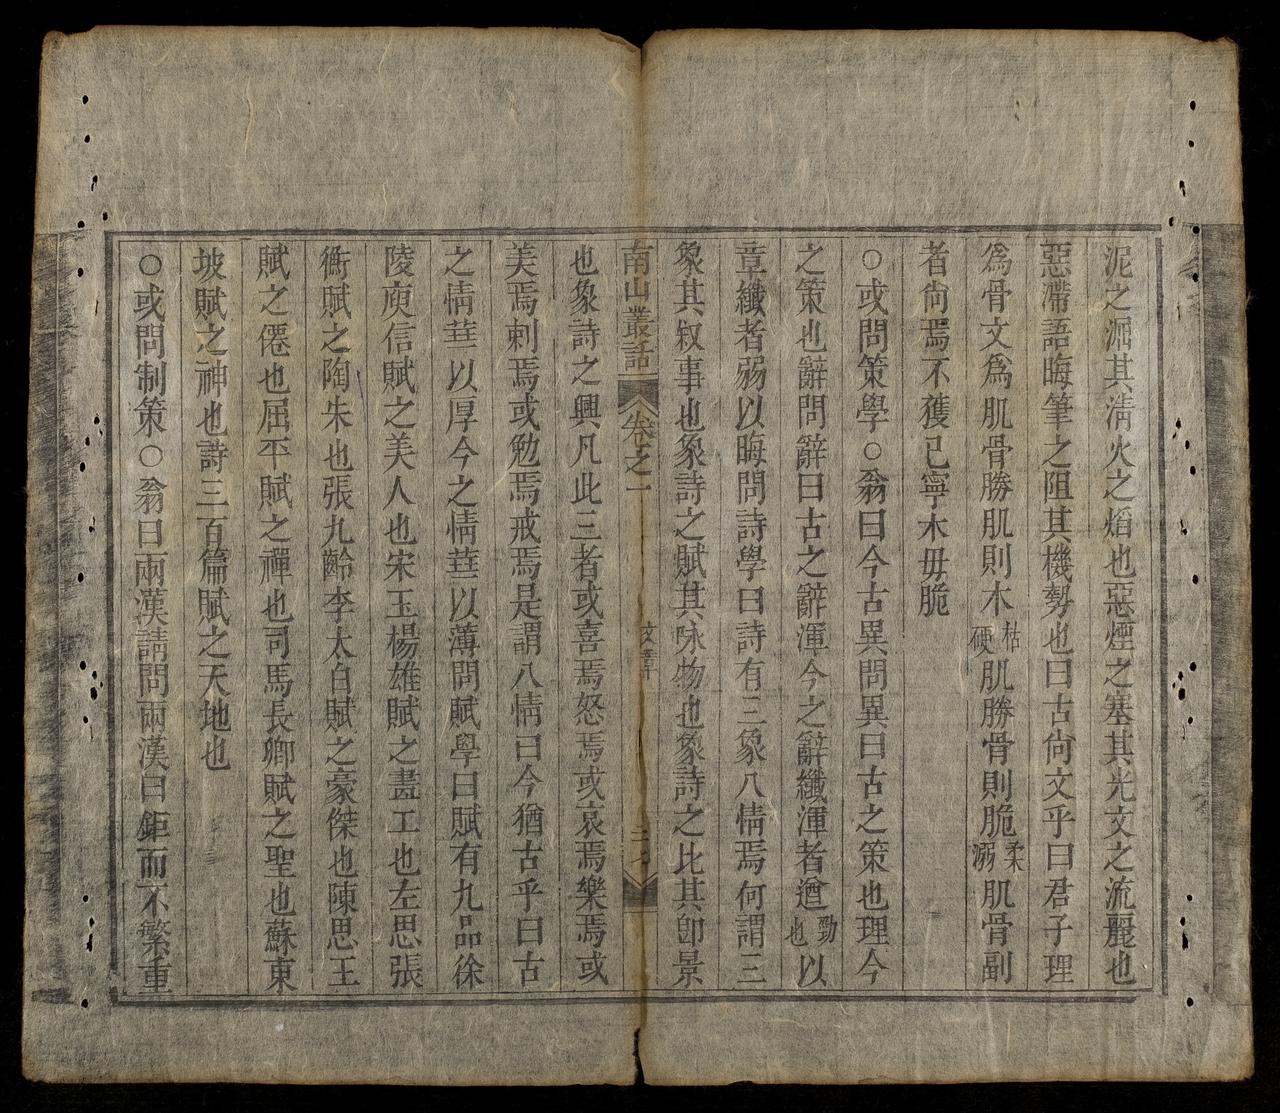 泥之淈其淸火之熖也惡煙之塞其光文之流麗也
惡滯語晦筆之阻其機勢也曰古尙文乎曰君子理
爲骨文爲肌骨勝肌則木枯硬肌勝骨則脆柔溺肌骨副
者尙焉不獲已寧木毋脆
○或問策學○翁曰今古異問異曰古之策也理今
之策也辭問辭曰古之辭渾今之辭纖渾者遒勁也以
章纖者弱以晦問詩學曰詩有三象八情焉何謂三
象其叙事也象詩之賦其咏物也象詩之比其卽景
南山叢話 卷之一 文章 二七
也象詩之興凡此三者或喜焉怒焉或哀焉樂焉或
美焉刺焉或勉焉戒焉是謂八情曰今猶古乎曰古
之情蕓以厚今之情蕓以薄問賦學曰賦有九品徐
陵庾信賦之美人也宋玉楊雄賦之畵工也左思張
衡賦之陶朱也張九齡李太白賦之豪傑也陳思王
賦之僊也屈平賦之禪也司馬長卿賦之聖也蘇東
坡賦之神也詩三百篇賦之天地也
○或問制策○翁曰兩漢請問兩漢曰鉅而不繁重